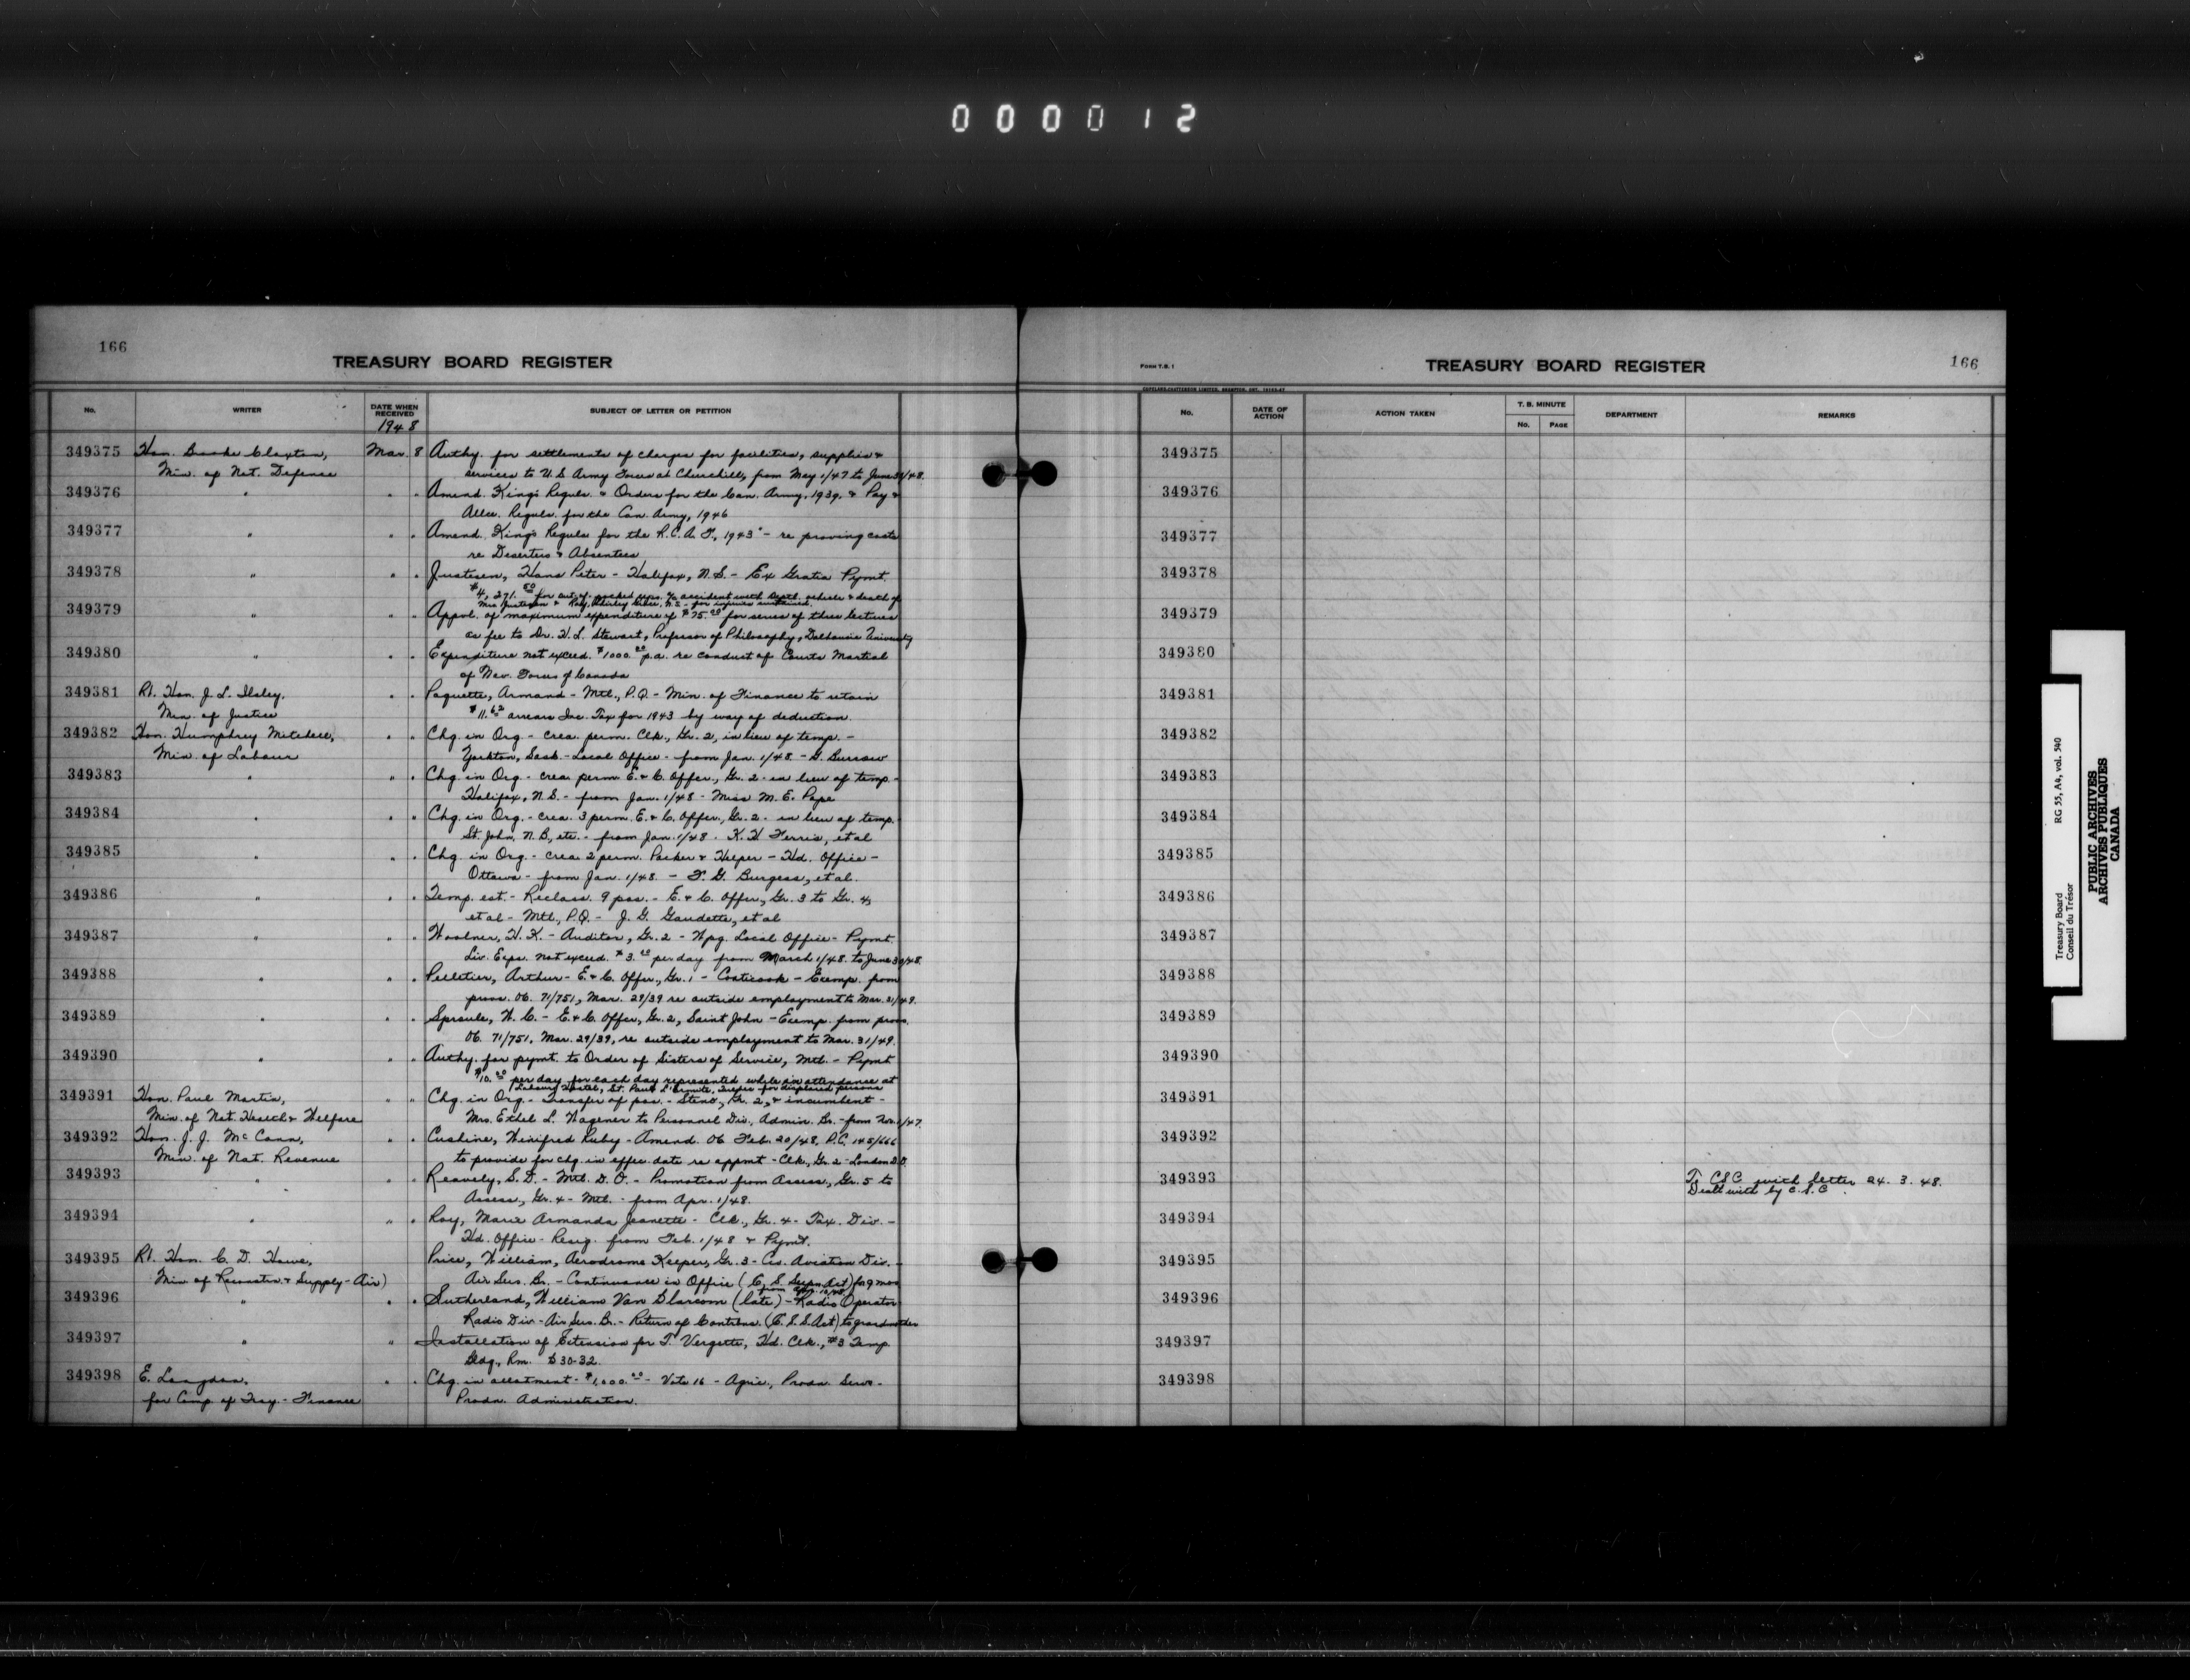 000012
166
TREASURY BOARD REGISTER
No. WRITER DATE WHEN RECEIVED SUBJECT OF LETTER OR PETITION
1948
349375 Hon. Brooke Claxton, Mar. 8 Authy. for settlements of charges for facilities, supplies &
Min. of Nat. Defense services to U.S Army Forces at Churchill, from May 1/47 to June 30/48.
349376 " " " Amend. King's Reguls. & Orders for the Can. Army, 1939, & Pay &
Allce. Reguls. for the Can. Army, 1946
349377 " " " Amend. King's Reguls for the R.C.A.F., 1943 - re proving costs
re Deserters & Absentees
349378 " " " Justesen, Hans Peter - Halifax, N.S. - Ex Gratia Pymt.
$4,271.50 for out of pocket exps. % accident with Deptl. vehicle & death of
Mrs Justesen & Kay, N.S. - for injuries sustained.
349379 " " " Appvl. of maximum expenditure of $75.00 for series of three lectures
as fee to Dr. H.L. Stewart, Professor of Philosophy, Dalhousie University
349380 " " " Expenditure not exceed. $1000.00 p.a. re conduct of Courts Martial
of Nav. Forces of Canada
349381 Rt. Hon. J. L. Ilsley, " " Paquette, Armand - Mtl., P.Q. - Min. of Finance to retain
Min. of Justice $11.62 arrears Inc. Tax for 1943 by way of deduction.
349382 Hon. Humphrey Mitchell, " " Chg. in Org - crea. perm. Clk., Gr. 2, in lieu of temp. -
Min. of Labour Yorkton, Sask. - Local Office - from Jan. 1/48 - G. Burrow
349383 " " " Chg. in Org - crea. perm E. & C. Offcr., Gr. 2 - in lieu of temp. -
Halifax, N.S. - from Jan. 1/48 - Miss M. E. Pope
349384 " " " Chg. in Org. - crea. 3 perm. E. & C. Offcr., Gr. 2. - in lieu of temp.
St. John, N.B., etc. - from Jan. 1/48. K. H Ferris, et al
349385 " " " Chg. in Org. - crea. 2 perm. Packer & Helper - Hd. Office -
Ottawa - from Jan. 1/48. - F. G. Burgess, et al.
349386 " " " Temp. est. - Reclass. 9 pos. - E. & C. Offcr., Gr. 3 to Gr. 4,
et al - Mtl., P.Q. - J. G. Gaudette, et al
349387 " " " Woolner, H. K. - Auditor, Gr. 2 - Wpg. Local Office - Pymt.
Liv. Exps. not exceed. $3.00 per day from March 1/48 to June 30/48.
349388 " " " Pelletier, Arthur - E & C. Offcr., Gr. 1 - Coaticook - Exemp. from
provs. OC. 71/751, Mar. 29/39 re outside employment to Mar. 31/49.
349389 " " " Sproule, W. C. - E. & C. Offcr., Gr. 2, Saint John - Exemp. from provs.
OC. 71/751, Mar. 29/39, re outside employment to Mar. 31/49.
349390 " " " Authy. for pymt. to Order of Sisters of Service, Mtl. - Pymt
$10.00 per day for each day represented while in attendance at
Labour Hostel, St. Paul L'Ermite, Quebec for displaced persons
349391 Hon. Paul Martin, " " Chg. in Org. - Transfer of pos. - Steno., Gr. 2, & incumbent -
Min. of Nat. Health & Welfare Mrs. Ethel L. Wagener to Personnel Div., Admin. Br. - from Nov. 1/47.
349392 Hon. J. J. McCann, " " Cushine, Winifred Ruby - Amend. OC Feb. 20/48, P.C. 145/666
Min. of Nat. Revenue to provide for chg. in effec. date re appmt - Clk., Gr. 2 - London D.O.
349393 " " Reavely, S. D. - Mtl. D. O. - Promotion from Assess., Gr. 5 to
Assess., Gr. 4 - Mtl. - from Apr. 1/48.
349394 " " " Roy, Marie Armanda Jeanette - Clk., Gr. 4 - Tax. Div. -
Hd. Office - Resig. from Feb. 1/48 & Pymt.
349395 Rt. Hon. C. D. Howe, Price, William, Aerodrome Keeper, Gr. 3 - Civ. Aviation Div. -
Min of Reconstn. & Supply - Air) Air Serv. Br. - Continuance in Office (C. S. Supn Act) for 9 mos
from Apr. 10/48
349396 " " " Sutherland, William Van Blarcom (late) - Radio Operator
Radio Div - Air Serv. Br. - Return of Contrbns. (C.S.S. Act) to grandmother
349397 " " Installation of Extension for T. Vergette, Hd. Clk., #3 Temp.
Bldg., Rm. B 30-32.
349398 E. Langdon, " " Chg. in allotment - $1,000.00 - Vote 16 - Agric., Prodn. Serv. -
for Comp. of Treas. - Finance Prodn. Administration.
FORM T.B. 1
TREASURY BOARD REGISTER
166
COPELAND-CHATTERSON LIMITED, BRAMPTON, ONT.
No. DATE OF ACTION ACTION TAKEN T. B. MINUTE No. PAGE DEPARTMENT REMARKS
349375
349376
349377
349378
349379
349380
349381
349382
349383
349384
349385
349386
349387
349388
349389
349390
349391
349392
349393 To CSC with letter 24. 3. 48.
Dealt with by C.S.C.
349394
349395
349396
349397
349398
Treasury Board RG 55, A4, vol. 540
Conseil du Trésor
PUBLIC ARCHIVES
ARCHIVES PUBLIQUES
CANADA